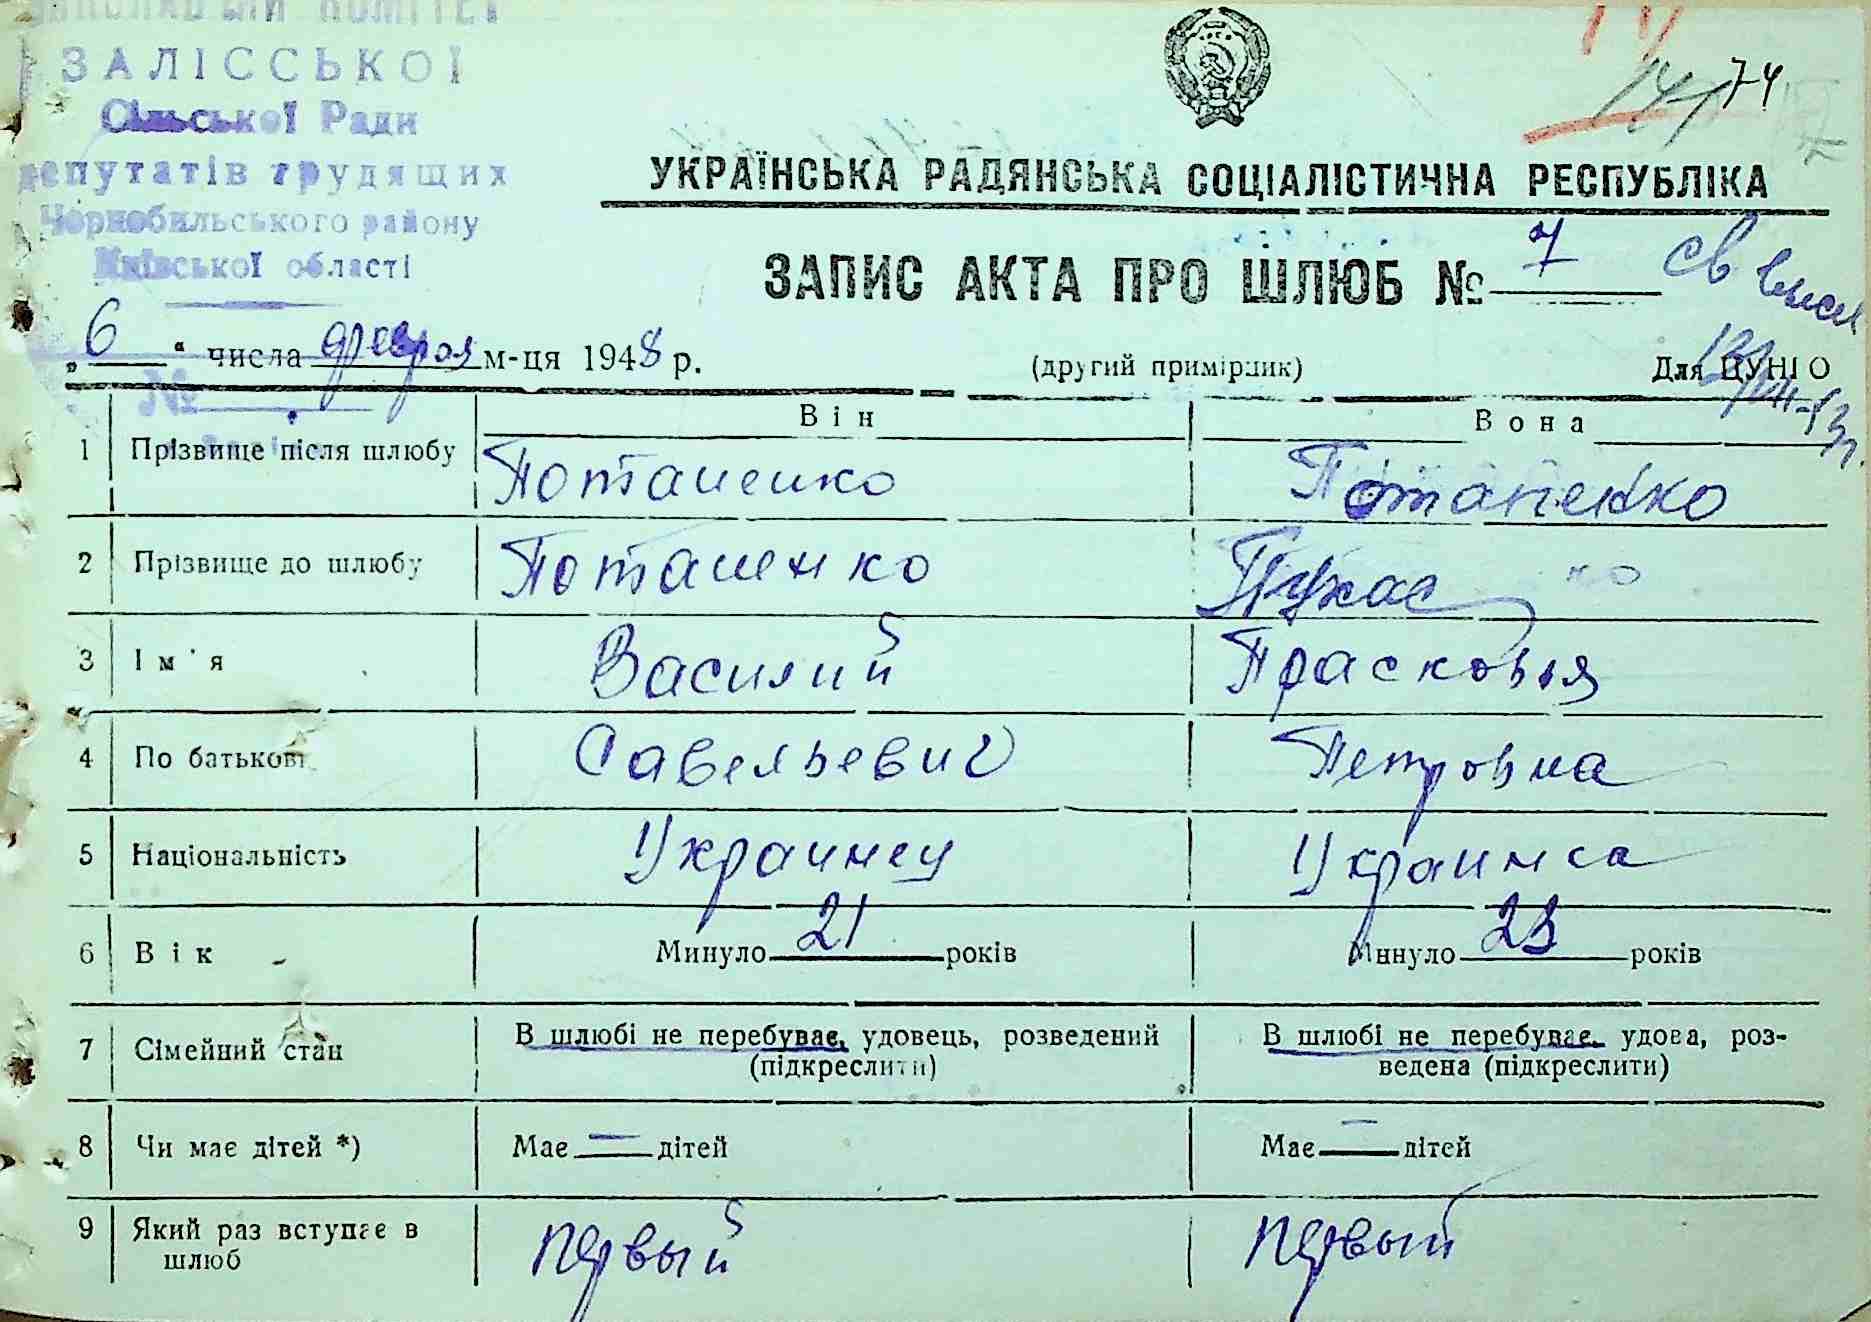 ВИКОНАВЧИЙ КОМІТЕТ
ЗАЛІССЬКОЇ
Сільської Ради
депутатів трудящих
Чорнобильського району
Київської області
№
74
УКРАЇНСЬКА РАДЯНСЬКА СОЦІАЛІСТИЧНА РЕСПУБЛІКА
ЗАПИС АКТА ПРО ШЛЮБ № 7
„ 6 “ числа февраля м-ця 1948 р.
(другий примірник)
Для ЦУНГО
Він Вона
1 Прізвище після шлюбу Потапенко Потапенко
2 Прізвище до шлюбу Потапенко
3 Ім'я Василий Прасковья
4 По батькові Савельевич Петровна
5 Національність Украинец Украинка
6 Вік Минуло 21 років Минуло 23 років
7 Сімейний стан В шлюбі не перебуває, удовець, розведений (підкреслити) В шлюбі не перебуває, удова, роз-
ведена (підкреслити)
8 Чи має дітей *) Має — дітей Має — дітей
9 Який раз вступає в шлюб первый первый